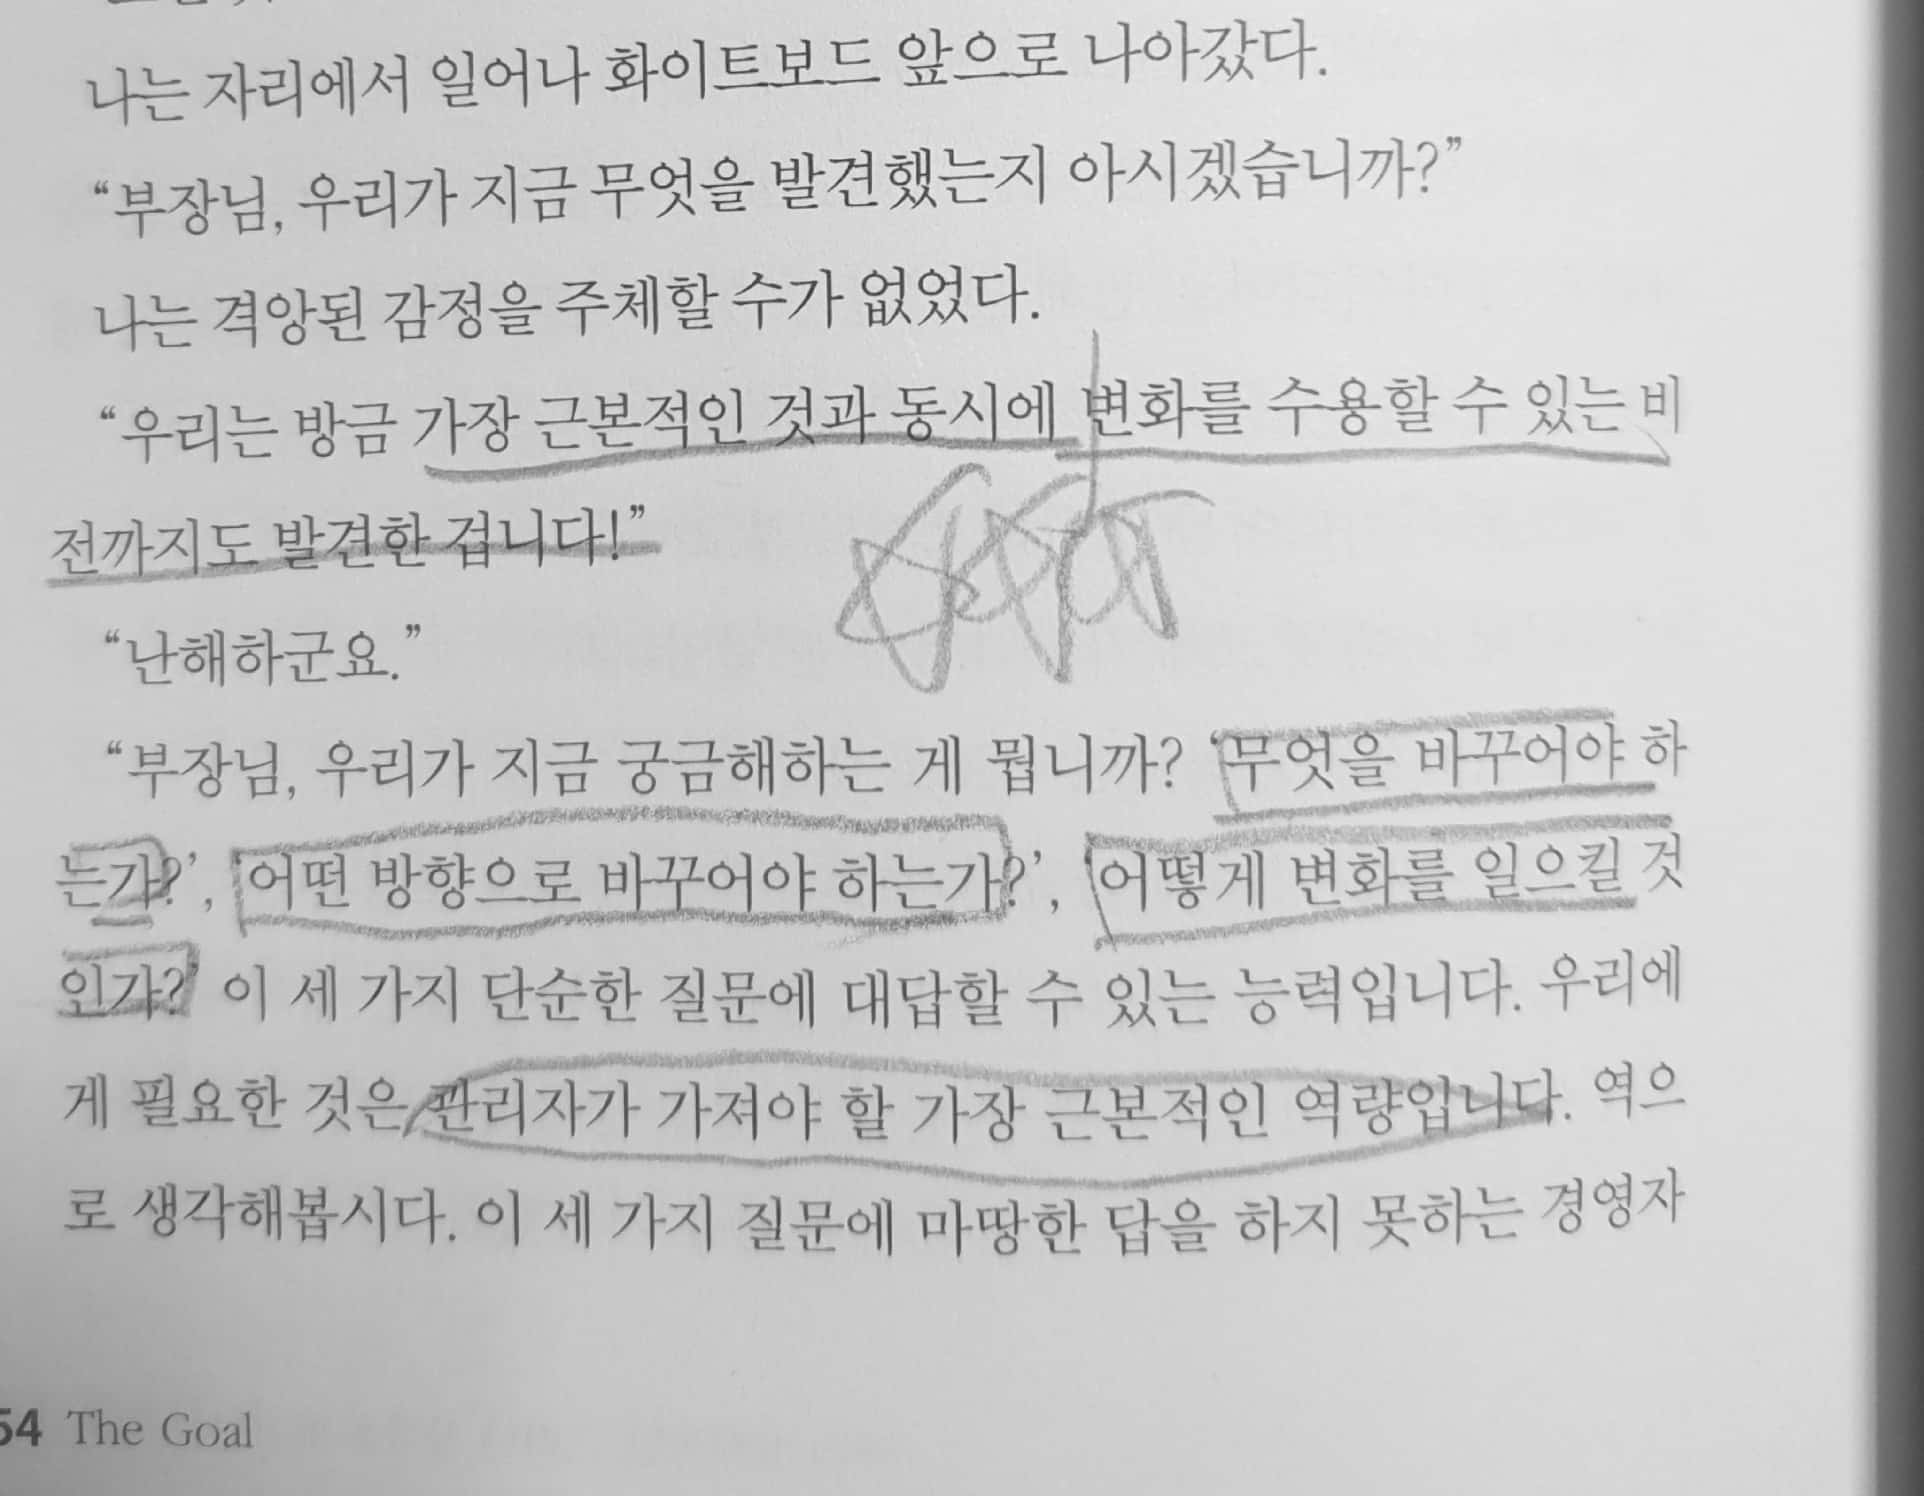 나는 자리에서 일어나 화이트보드 앞으로 나아갔다.
“부장님, 우리가 지금 무엇을 발견했는지 아시겠습니까?”
나는 격앙된 감정을 주체할 수가 없었다.
“우리는 방금 가장 근본적인 것과 동시에 변화를 수용할 수 있는 비
전까지도 발견한 겁니다!”
“난해하군요.”
“부장님, 우리가 지금 궁금해하는 게 뭡니까? ‘무엇을 바꾸어야 하
는가?’, ‘어떤 방향으로 바꾸어야 하는가?’, ‘어떻게 변화를 일으킬 것
인가?’ 이 세 가지 단순한 질문에 대답할 수 있는 능력입니다. 우리에
게 필요한 것은 관리자가 가져야 할 가장 근본적인 역량입니다. 역으
로 생각해봅시다. 이 세 가지 질문에 마땅한 답을 하지 못하는 경영자
54 The Goal